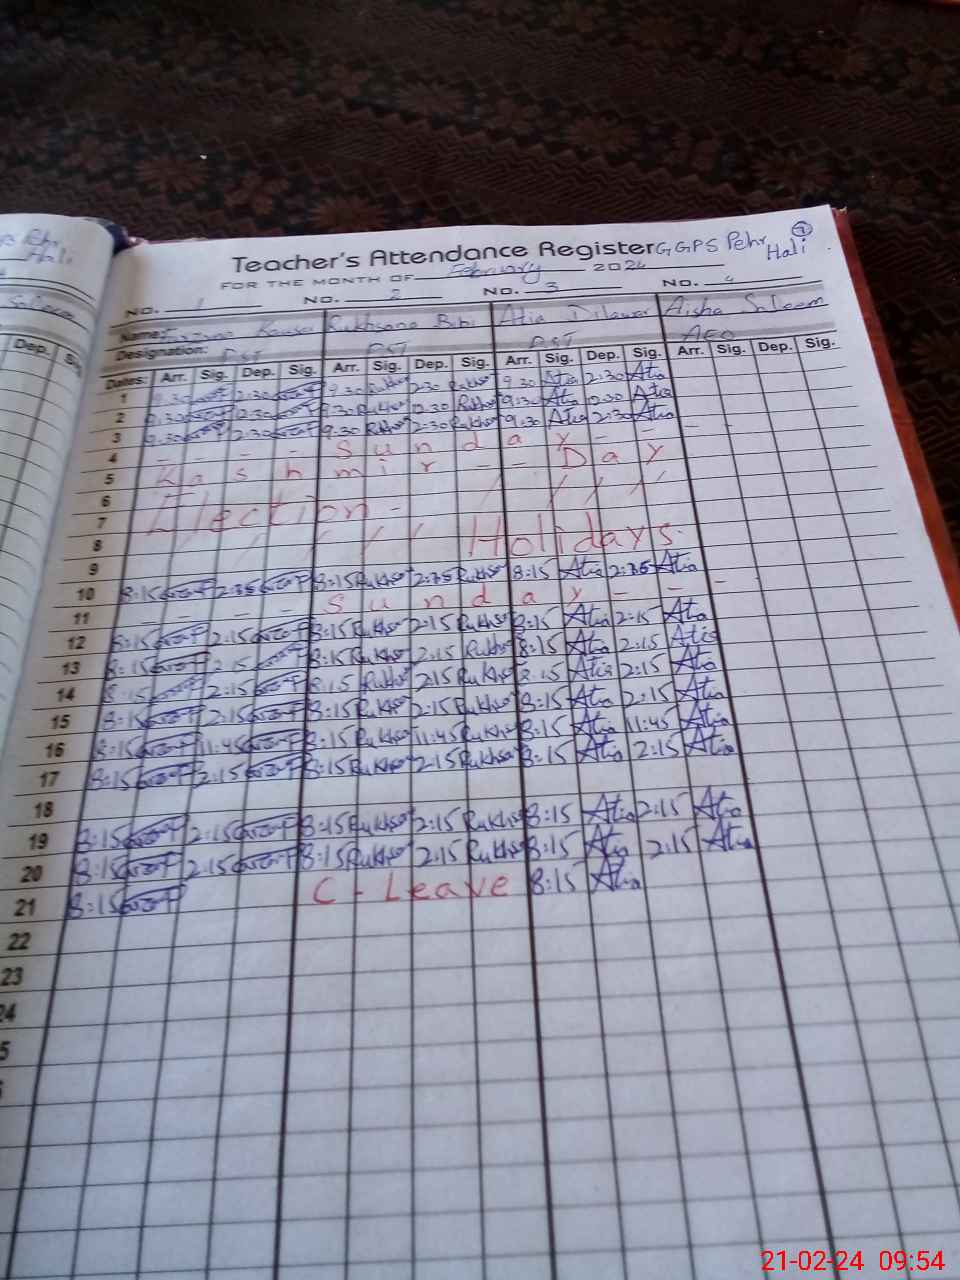 Teacher's Attendance Register GGPS Pehr Hali
FOR THE MONTH OF February 2024
NO. 1 NO. 2 NO. 3 NO. 4
Name: Kausar Rukhsana Bibi Atia Dilawar Aisha Saleem
Designation: PST PST PST AEO
Dates: Arr. Sig. Dep. Sig. Arr. Sig. Dep. Sig. Arr. Sig. Dep. Sig. Arr. Sig. Dep. Sig.
1 9.30 2:30 9.30 Rukhsa 2:30 Rukhsa 9.30 Atia 2:30 Atia
2 9.30 2:30 9.30 Rukhsa 2:30 Rukhsa 9:30 Atia 2:30 Atia
3 9.30 2:30 9.30 Rukhsa 2:30 Rukhsa 9:30 Atia 2:30 Atia
4 - - - - Sunday - - -
5 Kashmir - - Day
6
7 Election -
8 Holidays.
9
10 8:15 8:15 Rukhsa Rukhsa 8:15 Atia Atia
11 - - - - Sunday - - -
12 8:15 2:15 8:15 Rukhsa 2:15 Rukhsa 8:15 Atia 2:15 Atia
13 8:15 2:15 8:15 Rukhsa 2:15 Rukhsa 8:15 Atia 2:15 Atia
14 8:15 2:15 8:15 Rukhsa 2:15 Rukhsa 8:15 Atia 2:15 Atia
15 8:15 2:15 8:15 Rukhsa 2:15 Rukhsa 8:15 Atia 2:15 Atia
16 8:15 11:45 8:15 Rukhsa 11:45 Rukhsa 8:15 Atia 11:45 Atia
17 8:15 2:15 8:15 Rukhsa 2:15 Rukhsa 8:15 Atia 2:15 Atia
18
19 8:15 2:15 8:15 Rukhsa 2:15 Rukhsa 8:15 Atia 2:15 Atia
20 8:15 2:15 8:15 Rukhsa 2:15 Rukhsa 8:15 Atia 2:15 Atia
21 8:15 C - Leave 8:15 Atia
22
23
24
Hali
Dep.
21-02-24 09:54